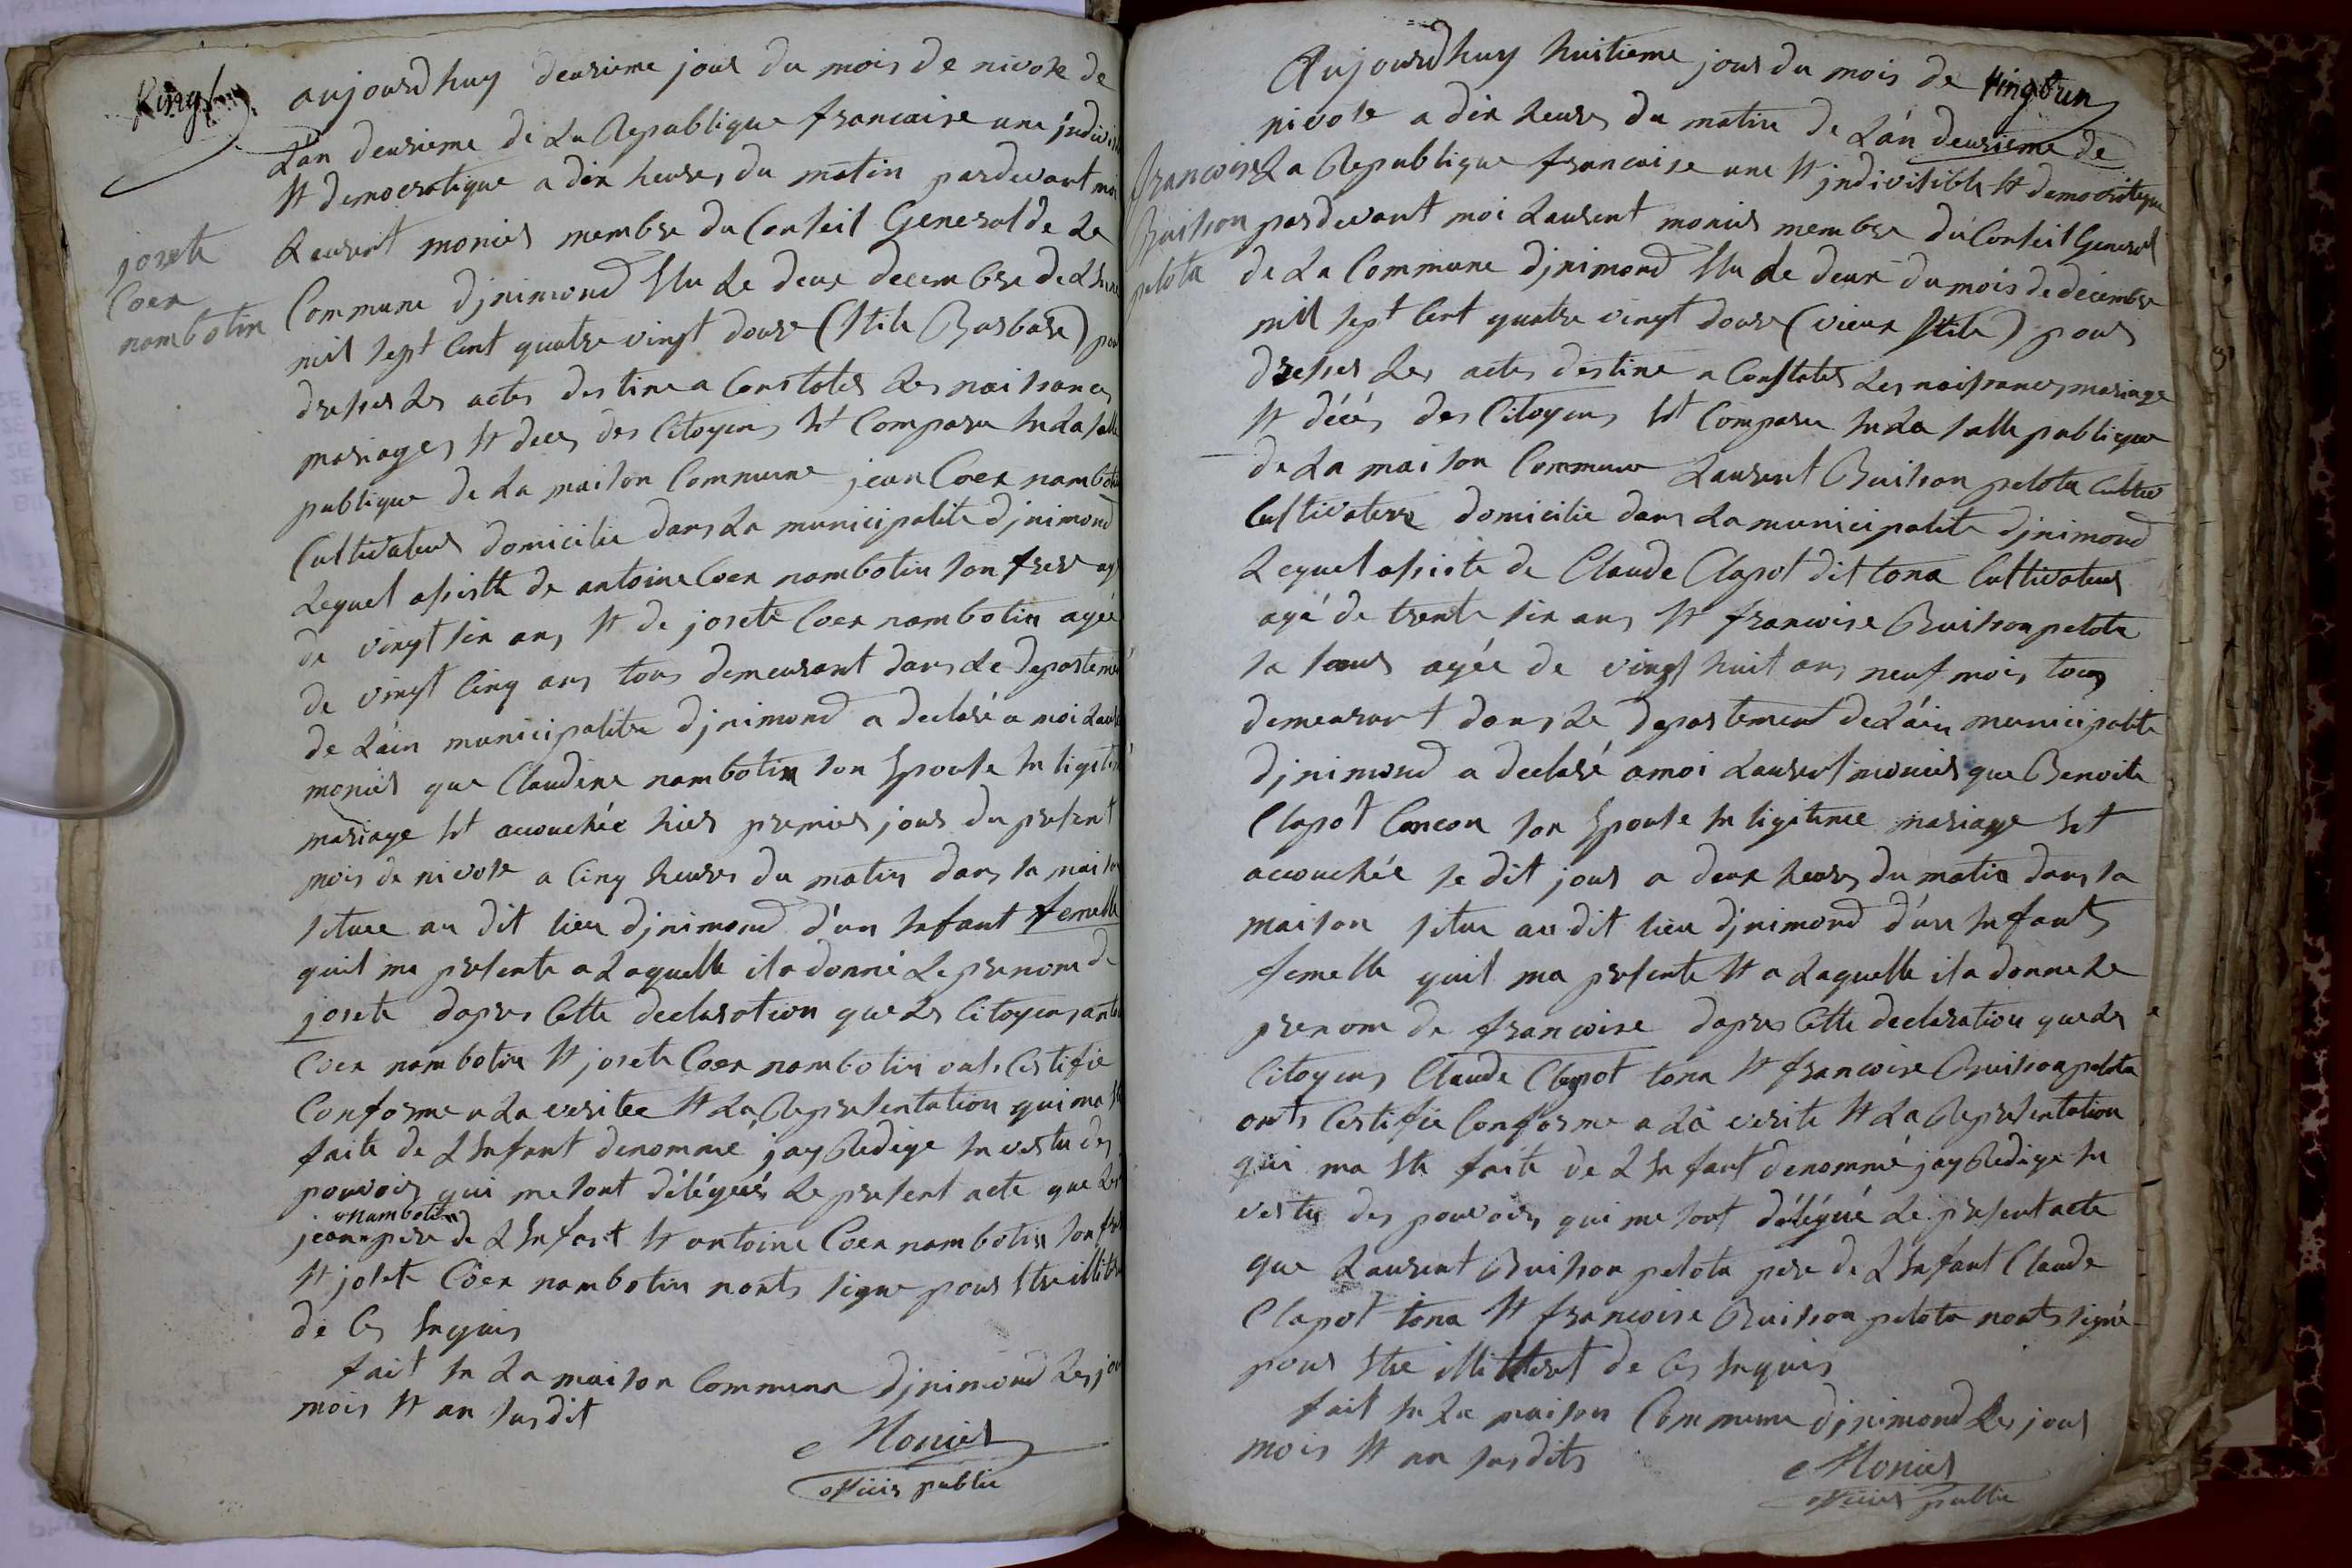 aujourdhuy deusieme jour du mois de nivose de
Lan deusieme de La Republique francaise une indivi
et democratique a dix heures du matin pardevant moi
Laurent monier membre du Conseil General de La
josete
Coer
nambotin
Commune djnimond Elu Le deux decembre de
mil sept Cent quatre vingt douse (Stile Barbare) pour
dresser Les actes destine a Constater Les naissances
mariages et deces des Citoyens Est Comparu En La salle
publique de La maison Commune jean Coer nambotin
Cultivateur domicilie dans La municipalite djnimond
Lequel assisté de antoine Coer nambotin son frere agé
de vingt six ans et de josete Coer nambotin agée
de vingt Cinq ans tous demeurant dans Le departement
de Láin municipalite djnimond a declaré a moi Laurent
monier que Claudine nambotin son Epouse En ligitime
mariage Est accouchée hier premier jour du present
mois de nivose a Cinq heures du matin dans sa maison
situee au dit lieu djnimond d'un Enfant femelle
quil ma presente a Laquelle il a donné Le prenom de
josete dapres Cette declaration que Les Citoyens antoine
Coer nambotin et josete Coer nambotin onts Certifie
Conforme a La veritee et La Representation qui ma Ete
faite de LEnfant denomme jay Redige En vertu des
pouvoirs qui me sont délégués Le present acte que
nambotin
jean pere de LEnfant et antoine Coer nambotin son frere
et josete Coer nambotin nonts signe pour Etre illiteré
de Ces Enquis
fait En La maison Commune djnimond Les jour
mois et an susdit
Monier
officier public
Aujourdhuy huitieme jour du mois de
vingtun
nivose a dix heures du matin de Lán deusieme de
francoise
Buisson
pelota
La Republique francaise une et jndivisible et democratique
pardevant moi Laurent monier membre du Conseil General
de La Commune djnimond Elu Le deux du mois de decembre
mil sept Cent quatre vingt douse (vieux Stile) pour
dresser Les actes destine a Constater Les naissances mariage
et décés des Citoyens Est Comparu En La salle publique
de La maison Commune Laurent Buisson pelota Cultiv
Cultivateur domicilie dans La municipalite djnimond
Lequel assiste de Claude Clapot dit tona Cultivateur
agé de trente six ans et francoise Buisson pelota
sa seur agée de vingt huit ans neuf mois tous
demeurant dans Le departement de Láin municipalite
djnimond a declaré a moi Laurent monier que Benoite
Clapot Concon son Epouse En ligitimee mariage Est
accouchée Le dit jour a deux heures du matin dans sa
maison situe au dit lieu djnimond d'un Enfant
femelle quil ma presente et a Laquelle il a donne Le
prenom de francoise dapres Cette declaration que Les
Citoyens Claude Clapot tona et francoise Buisson pelota
onts Certifie Conforme a Lá verite et La Representation
qui ma Ete faite de LEnfant denommé jay Redige En
vertu des pouvoirs qui me sont délégué Le present acte
que Laurent Buisson pelota pere de LEnfant Claude
Clapot tona et francoise Buisson pelota nonts signé
pour Etre illitteret de Ces Enquis
fait En La maison Commune djnimond Les jour
mois et an susdits
Monier
officier public